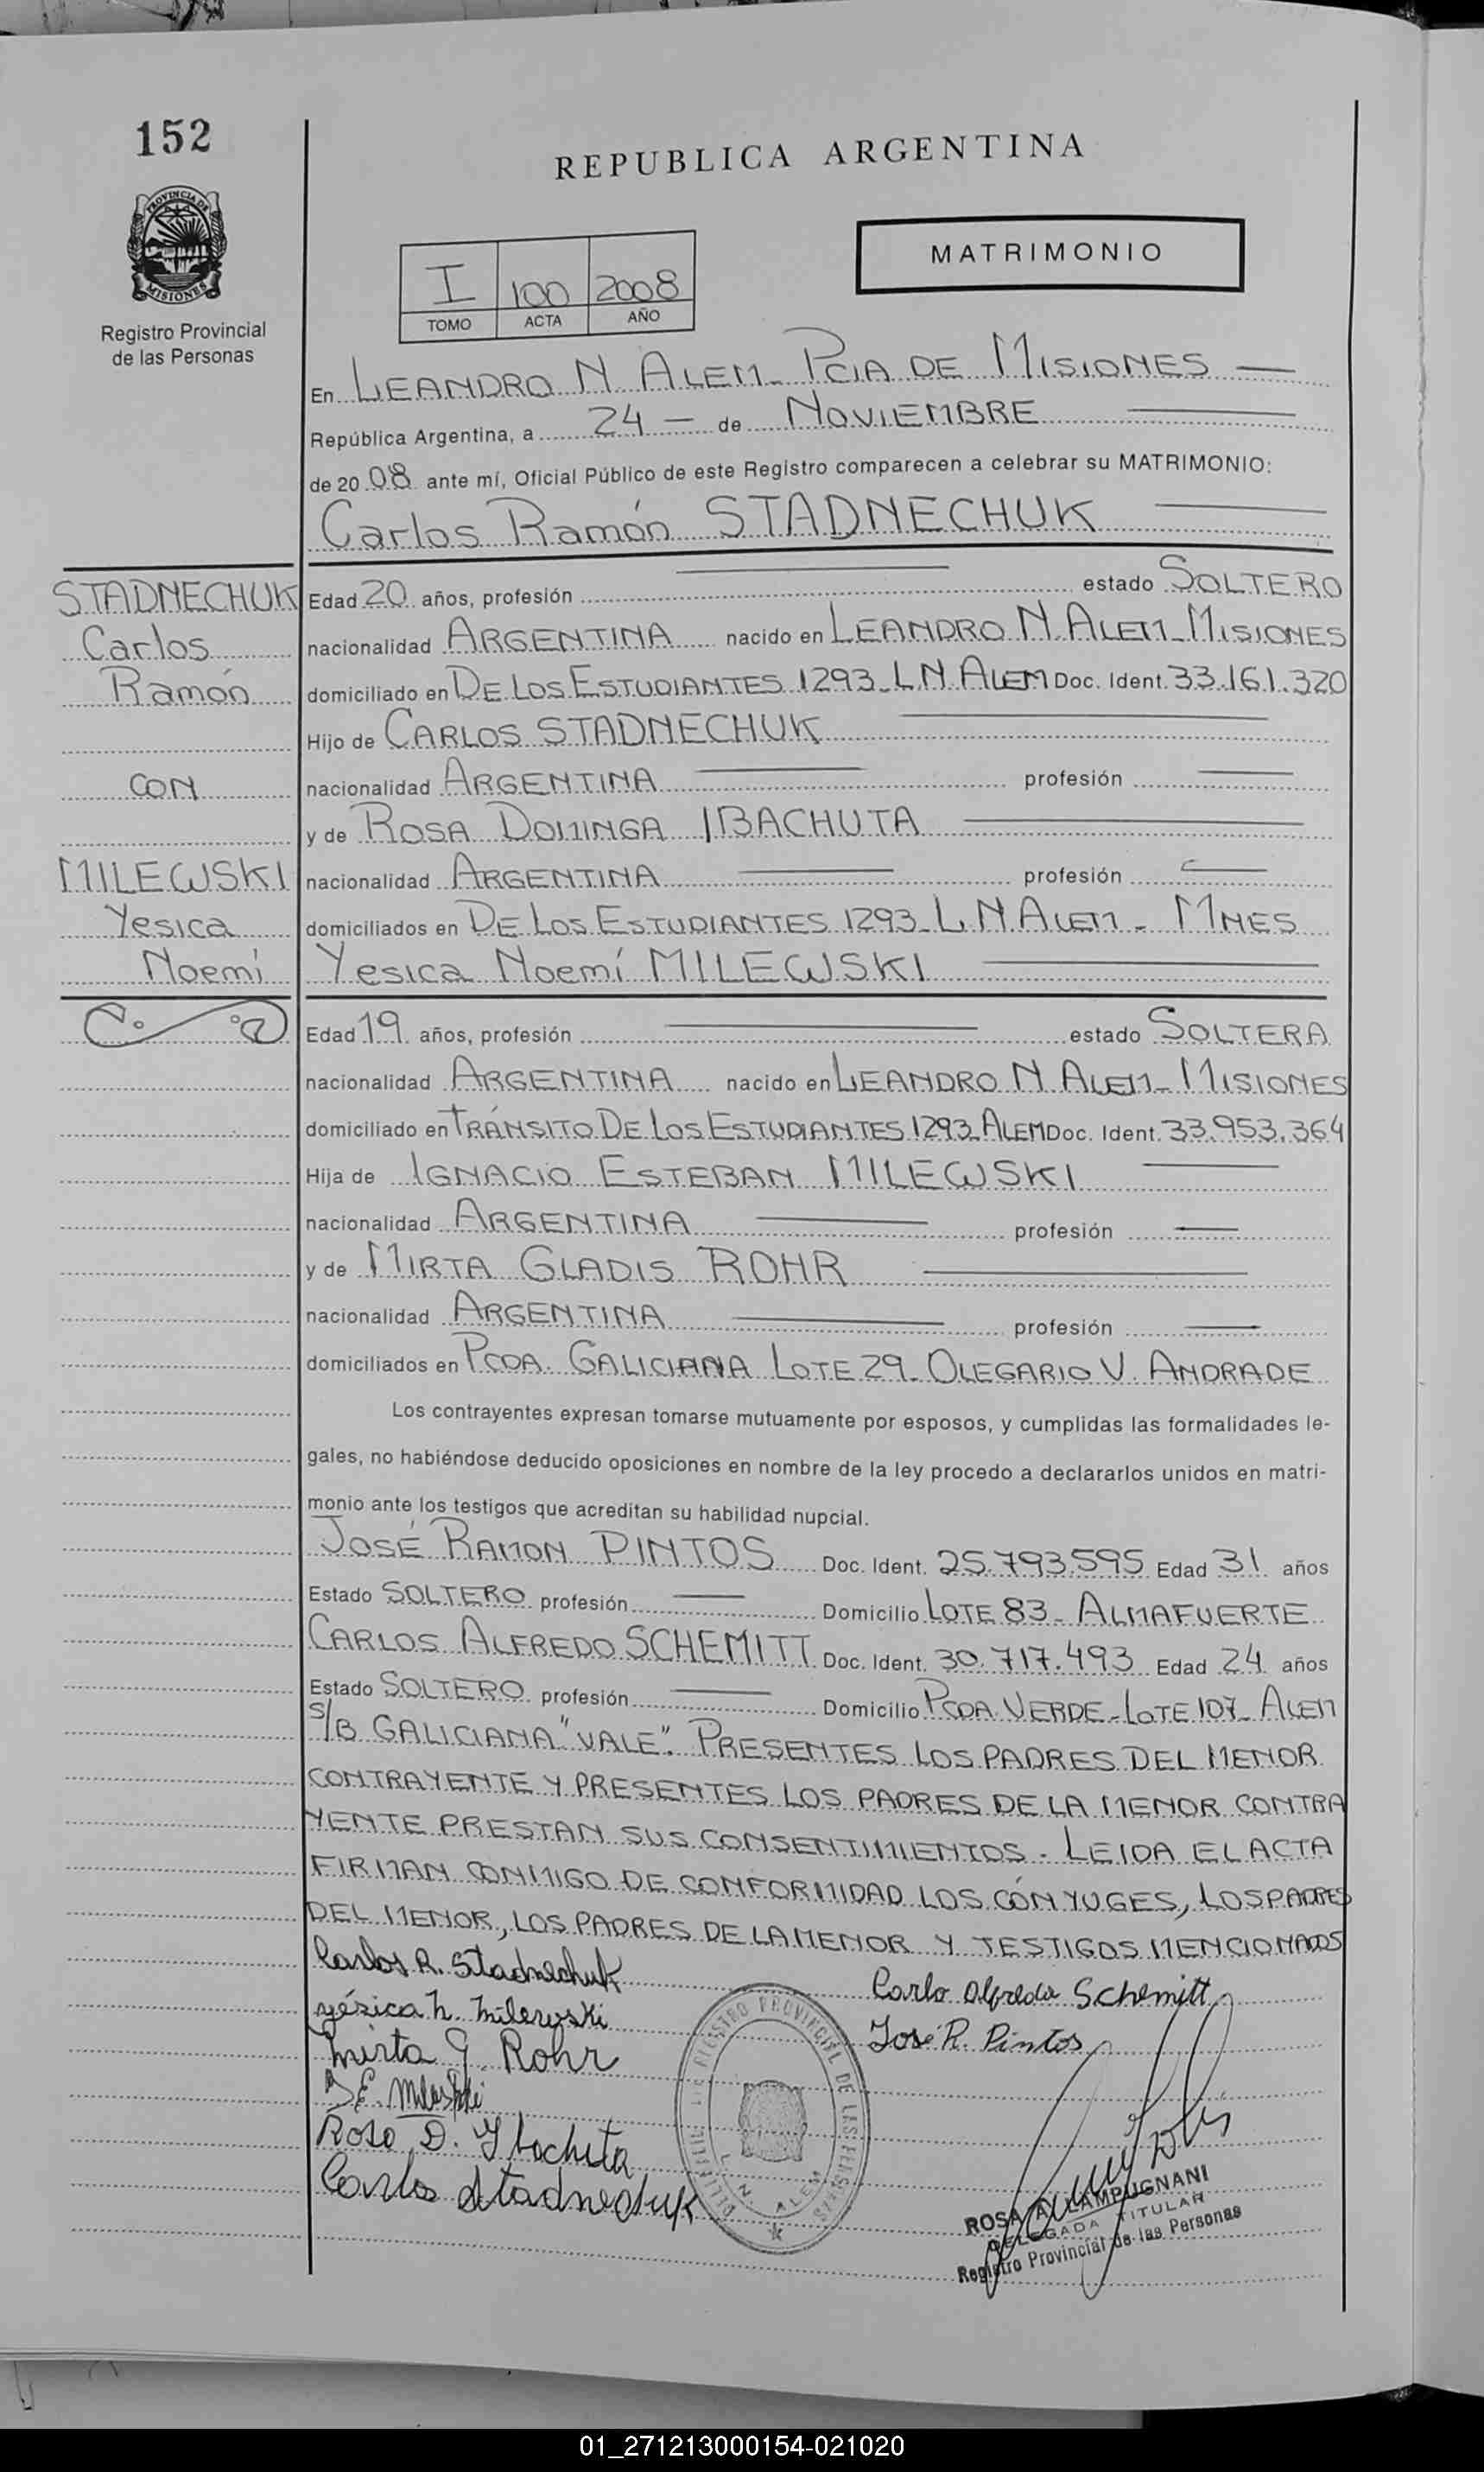 152
REPUBLICA ARGENTINA
PROVINCIA DE
MISIONES
Registro Provincial
de las Personas
MATRIMONIO
I 100 2008
TOMO ACTA AÑO
En LEANDRO N. ALEM - PCIA DE MISIONES
República Argentina, a 24 - de NOVIEMBRE
de 2008 ante mí, Oficial Público de este Registro comparecen a celebrar su MATRIMONIO:
Carlos Ramón STADNECHUK
STADNECHUK
Carlos
Ramón
CON
MILEWSKI
Yesica
Noemí
Edad 20 años, profesión estado SOLTERO
nacionalidad ARGENTINA nacido en LEANDRO N. ALEM - MISIONES
domiciliado en DE LOS ESTUDIANTES 1293 - L.N. ALEM Doc. Ident. 33.161.320
Hijo de CARLOS STADNECHUK
nacionalidad ARGENTINA profesión
y de ROSA DOMINGA IBACHUTA
nacionalidad ARGENTINA profesión
domiciliados en DE LOS ESTUDIANTES 1293 - L.N. ALEM - MNES
Yesica Noemí MILEWSKI
Edad 19 años, profesión estado SOLTERA
nacionalidad ARGENTINA nacido en LEANDRO N. ALEM - MISIONES
domiciliado en TRÁNSITO DE LOS ESTUDIANTES 1293 - ALEM Doc. Ident. 33.953.364
Hija de IGNACIO ESTEBAN MILEWSKI
nacionalidad ARGENTINA profesión
y de MIRTA GLADIS ROHR
nacionalidad ARGENTINA profesión
domiciliados en PCDA. GALICIANA LOTE 29 - OLEGARIO V. ANDRADE
Los contrayentes expresan tomarse mutuamente por esposos, y cumplidas las formalidades le-
gales, no habiéndose deducido oposiciones en nombre de la ley procedo a declararlos unidos en matri-
monio ante los testigos que acreditan su habilidad nupcial.
JOSÉ RAMON PINTOS Doc. Ident. 25.793.595 Edad 31 años
Estado SOLTERO profesión Domicilio LOTE 83 - ALMAFUERTE
CARLOS ALFREDO SCHEMITT Doc. Ident. 30.717.493 Edad 24 años
Estado SOLTERO profesión Domicilio PCDA VERDE - LOTE 107 - ALEM
S/B GALICIANA "VALE". PRESENTES LOS PADRES DEL MENOR
CONTRAYENTE Y PRESENTES LOS PADRES DE LA MENOR CONTRA
YENTE PRESTAN SUS CONSENTIMIENTOS. LEIDA EL ACTA
FIRMAN CONMIGO DE CONFORMIDAD LOS CÓNYUGES, LOS PADRES
DEL MENOR, LOS PADRES DE LA MENOR Y TESTIGOS MENCIONADOS
Carlos R. Stadnechuk
Yésica N. Milewski
Mirta G. Rohr
I E. Milewski
Rosa D. Ybachuta
Carlos Stadnechuk
Carlo Alfredo Schemitt
José R. Pintos
REGISTRO PROVINCIAL DE LAS PERSONAS
L. N. ALEM
ROSA A. LAMPUGNANI
DELEGADA TITULAR
Registro Provincial de las Personas
01_271213000154-021020